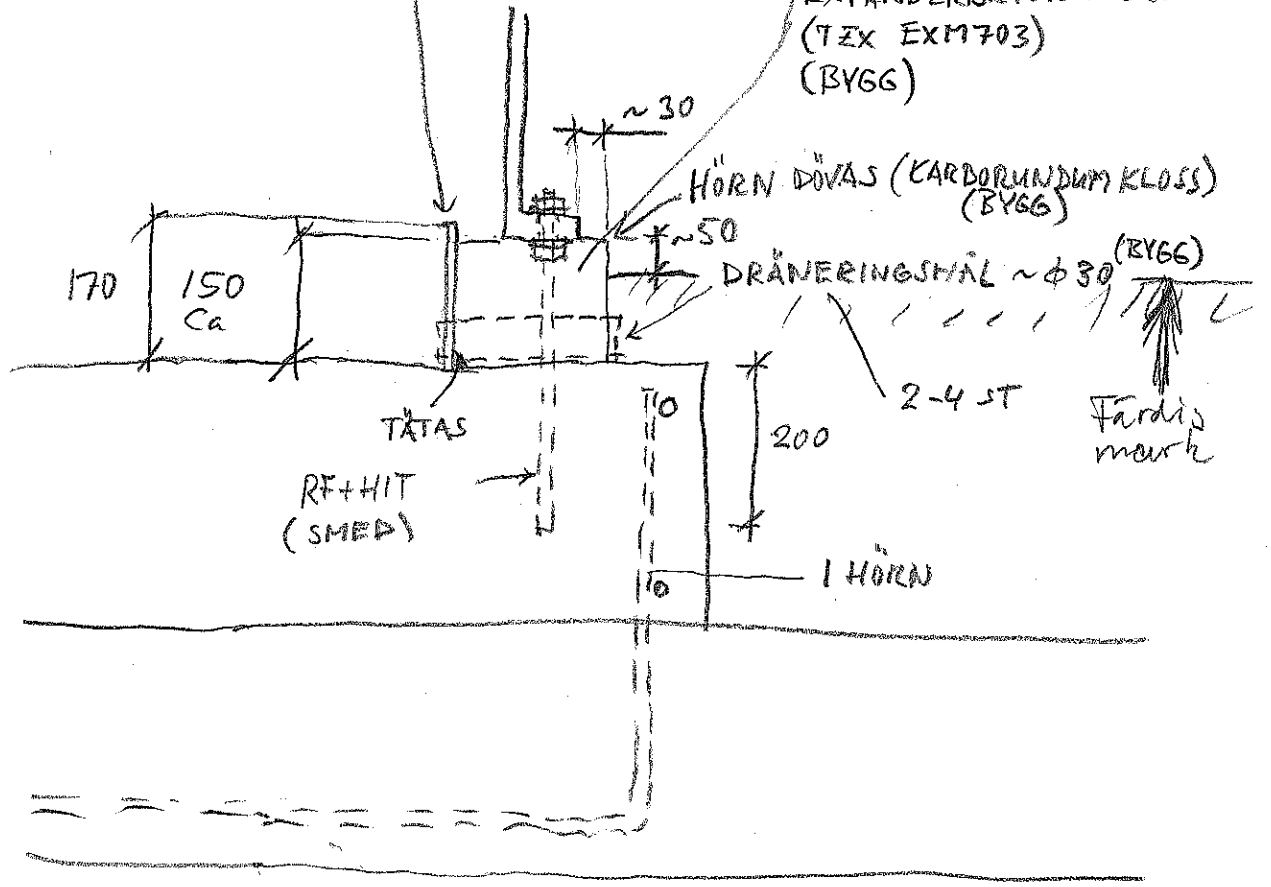 (TEX EXM703)
(BYGG)
~ 30
HÖRN DÖVAS (KARBORUNDUM KLOSS)
(BYGG)
~50
DRÄNERINGSHÅL ~ φ 30 (BYGG)
170
150
Ca
2-4 ST
Färdig
mark
TÄTAS
200
RF+HIT
(SMED)
1 HÖRN